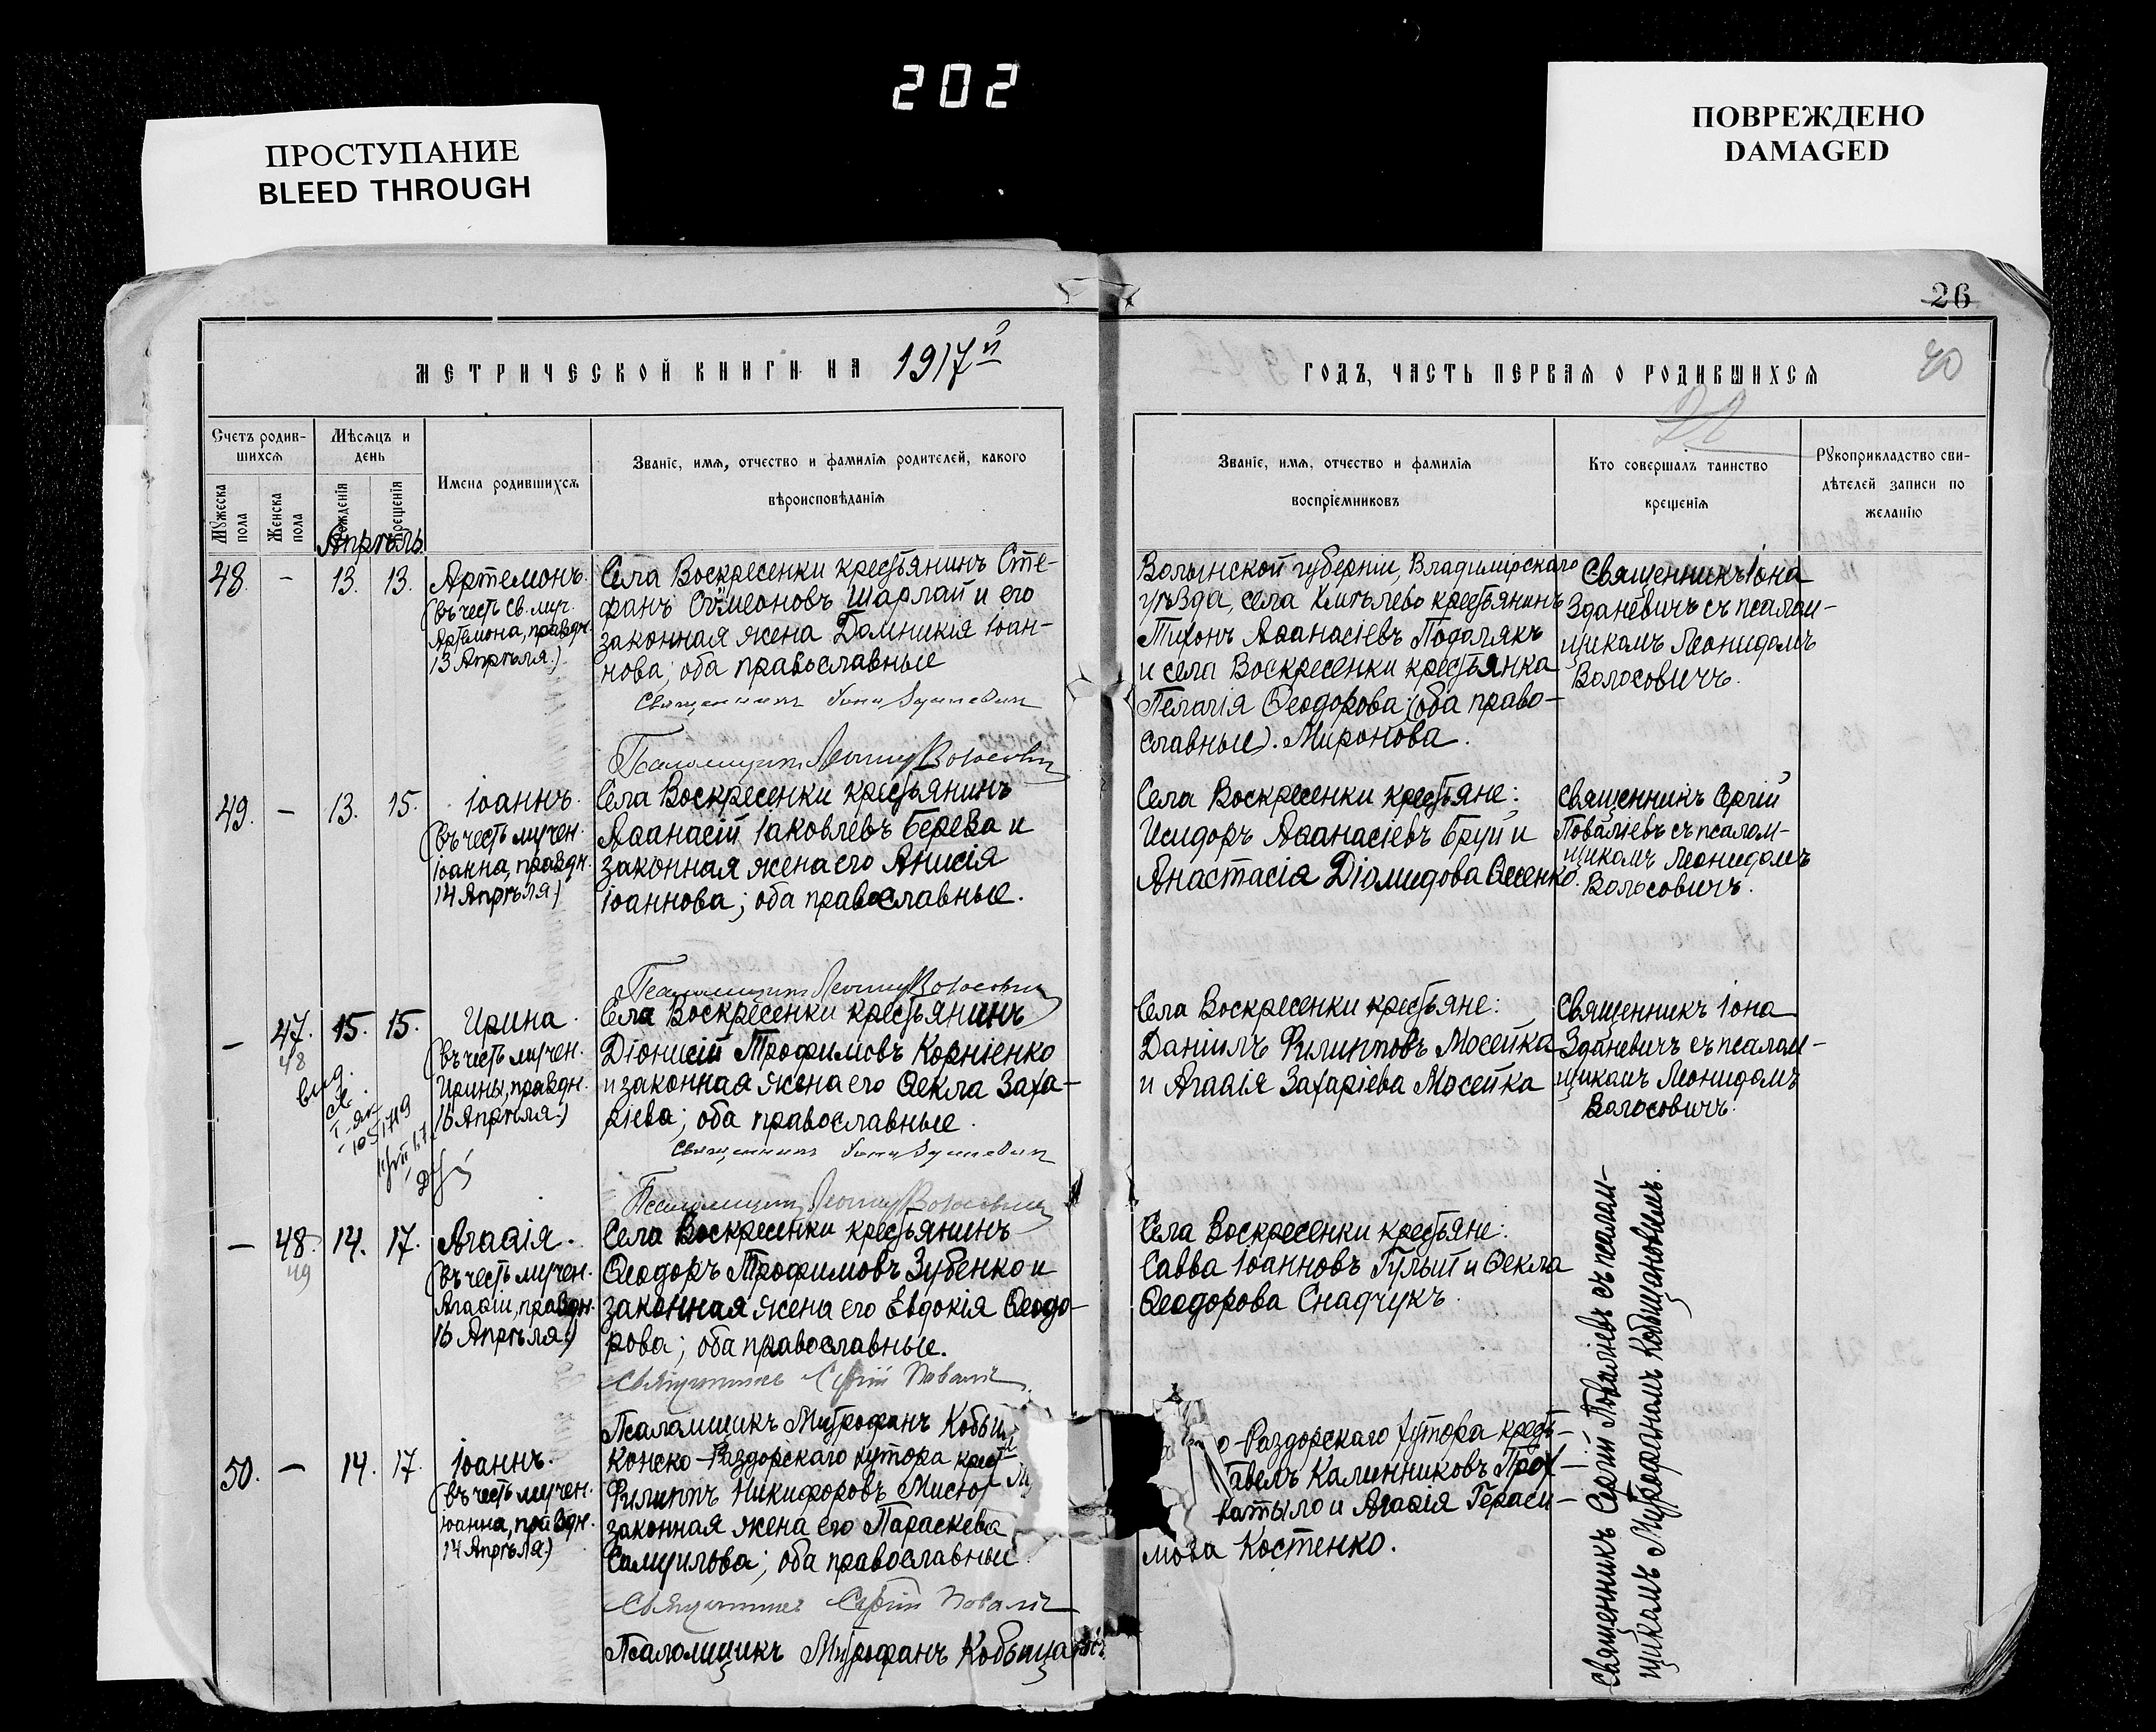 202
ПРОСТУПАНИЕ
BLEED THROUGH
ПОВРЕЖДЕНО
DAMAGED
26
40
МЕТРИЧЕСКОЙ КНИГИ НА 1917й
ГОДЪ, ЧАСТЬ ПЕРВАЯ О РОДИВШИХСЯ
Счетъ родив-
шихся
Мѣсяцъ и
день
Имена родившихся
Званіе, имя, отчество и фамилія родителей, какого
вѣроисповѣданія
Мужеска
пола
Женска
пола
рожденія
крещенія
Званіе, имя, отчество и фамилія
воспріемниковъ
Кто совершалъ таинство
крещенія
Рукоприкладство сви-
дѣтелей записи по
желанію
Апрѣль
48. – 13. 13.
Артемонъ.
(въ честь св. муч.
Артемона, праздн.
13 Апрѣля.)
Села Воскресенки крестьянинъ Сте-
фанъ Сѵмеоновъ Шарлай и его
законная жена Домникія Іоан-
нова; оба православные
Священникъ Іона Зданевич
Псаломщикъ Леонид Волосович
Волынской губерніи, Владимірскаго
уѣзда, села Хмѣлево крестьянинъ
Тихонъ Аѳанасіевъ Подолякъ
и села Воскресенки крестьянка
Пелагія Ѳеодорова; (оба право-
славные). Миронова.
Священникъ Іона
Зданевичъ съ псалом-
щикомъ Леонидомъ
Волосовичъ.
49. – 13. 15.
Іоаннъ.
(въ честь мучен.
Іоанна, праздн.
14 Апрѣля)
Села Воскресенки крестьянинъ
Аѳанасій Іаковлевъ Береза и
законная жена его Анисія
Іоаннова; оба православные.
Псаломщикъ Леонид Волосович
Села Воскресенки крестьяне:
Исидоръ Аѳанасіевъ Бруй и
Анастасія Діомидова Ѳесенко.
Священникъ Сергій
Поваліевъ съ псалом-
щикомъ Леонидомъ
Волосовичъ.
– 47. 15. 15.
48
Ирина.
(въ честь мучен.
Ирины, праздн.
16 Апрѣля.)
Села Воскресенки крестьянинъ
Діонисій Трофимовъ Корніенко
и законная жена его Ѳекла Заха-
ріева; оба православные.
Священникъ Іона Зданевич
Псаломщикъ Леонид Волосович
Села Воскресенки крестьяне:
Даніилъ Филипповъ Мосейка
и Агаѳія Захаріева Мосейка
Священникъ Іона
Зданевичъ съ псалом-
щикомъ Леонидомъ
Волосовичъ.
– 48. 14. 17.
49
Агаѳія.
(въ честь мучен.
Агаѳіи, праздн.
16 Апрѣля.)
Села Воскресенки крестьянинъ
Ѳеодоръ Трофимовъ Зубенко и
законная жена его Евдокія Ѳеодо-
рова; оба православные.
Священникъ Сергій Поваліе
Псаломщикъ Митрофанъ Кобыщ
Села Воскресенки крестьяне:
Савва Іоанновъ Гулый и Ѳекла
Ѳеодорова Снадчукъ.
50. – 14. 17.
Іоаннъ.
(въ честь мучен.
Іоанна, праздн.
14 Апрѣля)
Конско-Раздорскаго хутора крест
Филиппъ Никифоровъ Мисюг
законная жена его Параскева
Самуилова; оба православные.
Священникъ Сергій Поваліе
Псаломщикъ Митрофанъ Кобыща
о-Раздорскаго хутора кресть-
авелъ Калинниковъ
и Агаѳія Гераси-
мова Костенко.
Священникъ Сергій Поваліевъ съ псалом-
щикомъ Митрофаномъ Кобыщановымъ.